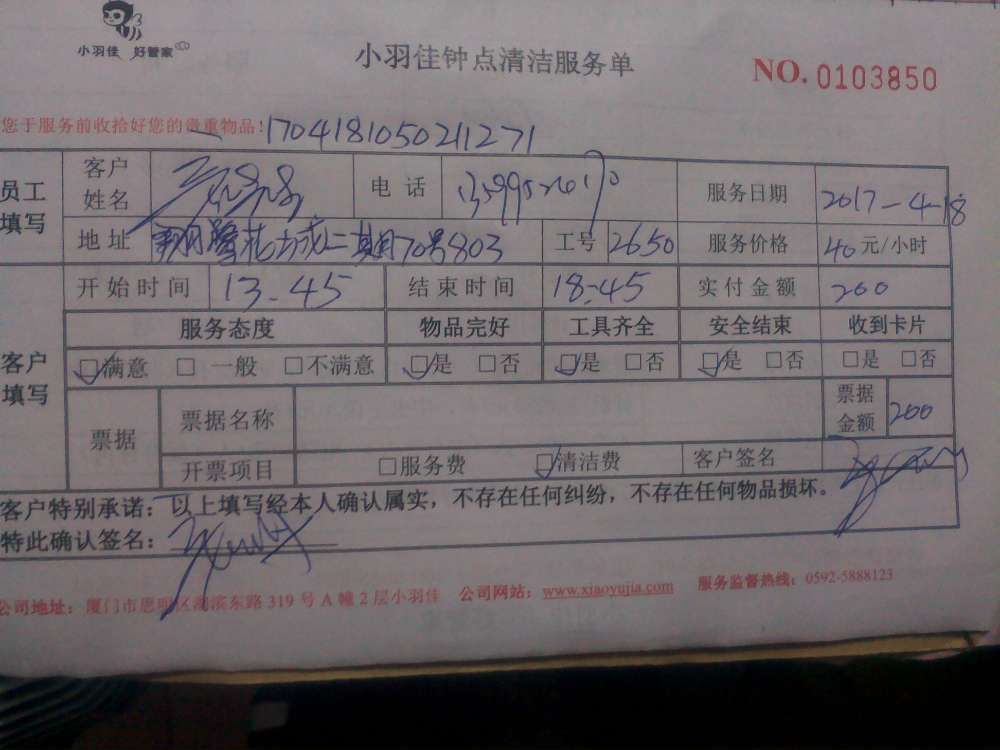 小羽佳 好管家
小羽佳钟点清洁服务单
NO. 0103850
您于服务前收拾好您的贵重物品!
1704181050211271
员工填写 客户姓名 电话 服务日期 2017-4-18
地址 花城二期70号803 工号 2650 服务价格 40元/小时
客户填写 开始时间 13-45 结束时间 18-45 实付金额 200
服务态度 物品完好 工具齐全 安全结束 收到卡片
☑满意 □一般 □不满意 ☑是 □否 ☑是 □否 ☑是 □否 □是 □否
票据 票据名称 票据金额 200
开票项目 □服务费 ☑清洁费 客户签名
客户特别承诺：以上填写经本人确认属实，不存在任何纠纷，不存在任何物品损坏。
特此确认签名：
公司地址：厦门市思明区湖滨东路 319 号 A 幢 2 层小羽佳 公司网站：www.xiaoyujia.com 服务监督热线：0592-5888123